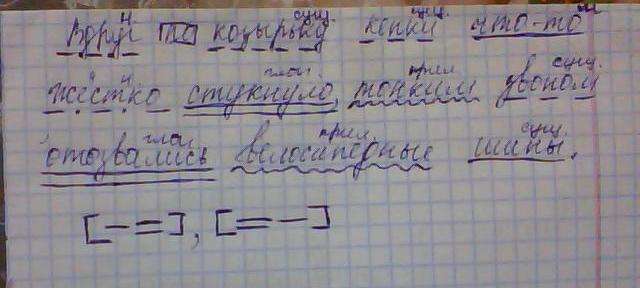 Вдруг по козырьку сущ. кепки сущ. что-то
жёстко стукнуло глаг, тонким прил звоном сущ.
отозвались глаг велосипедные прил. шины сущ.
[— =], [= —]